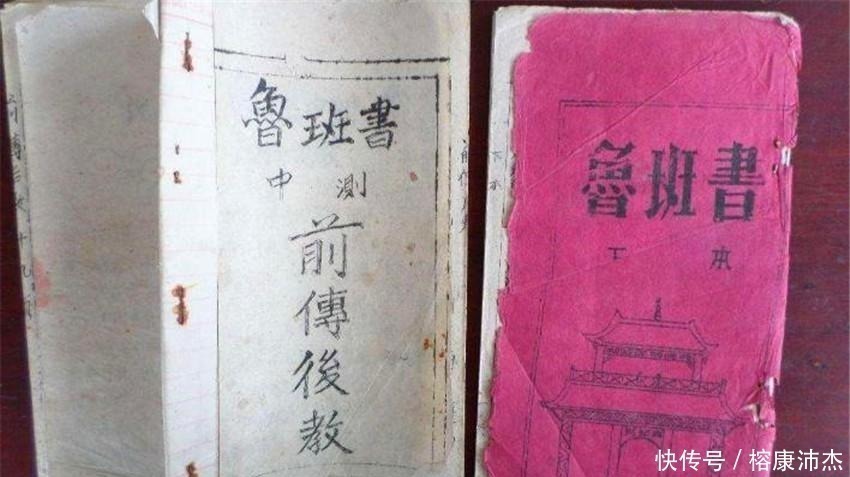 魯班書
中測
前傳後教
魯班書
下本
快传号/榕康沛杰